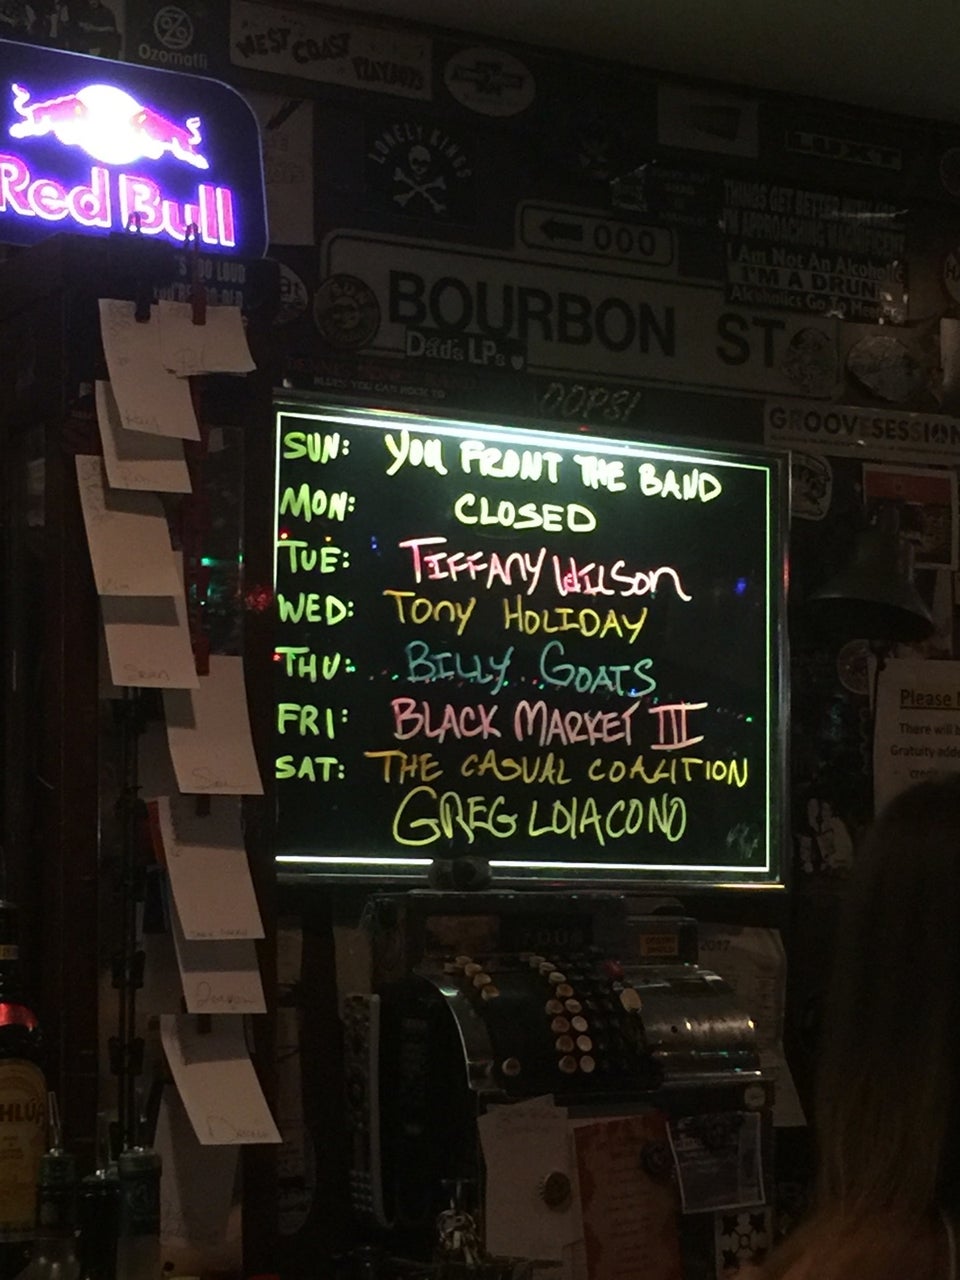 Ozomatli
WEST COAST
PLAYBOYS
LONELY KINGS
LUXT
Red Bull
000
THINGS GET BETTER WITH AGE
I'M APPROACHING MAGNIFICENT
I Am Not An Alcoholic
I'M A DRUNK
Alcoholics Go To Meetings
BOURBON ST
Dad's LPs
OOPS!
GROOVESESSION
SUN: YOU FRONT THE BAND
MON: CLOSED
TUE: TIFFANY WILSON
WED: TONY HOLIDAY
THU: BILLY GOATS
FRI: BLACK MARKET III
SAT: THE CASUAL COALITION
GREG LOIACONO
Please
There will b
Gratuity adde
2017
HLÚA